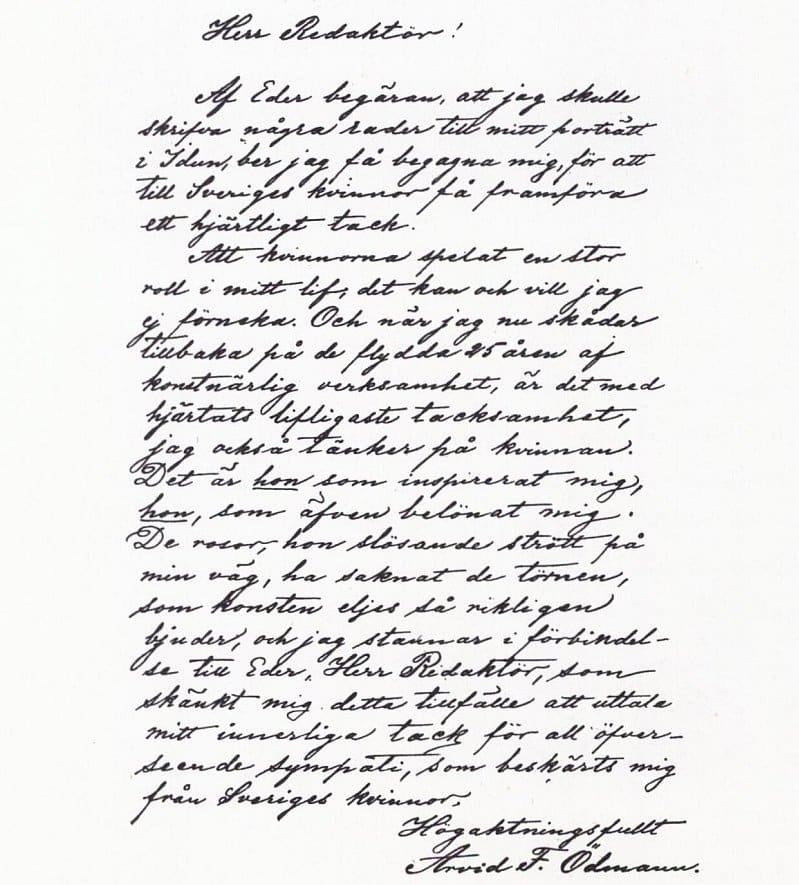 Herr Redaktör!
Af Eder begäran, att jag skulle
skrifva några rader till mitt porträtt
i Idun, ber jag få begagna mig, för att
till Sveriges kvinnor få framföra
ett hjärtligt tack.
Att kvinnorna spelat en stor
roll i mitt lif, det kan och vill jag
ej förneka. Och när jag nu skådar
tillbaka på de flydda 25 åren af
konstnärlig verksamhet, är det med
hjärtats lifligaste tacksamhet,
jag också tänker på kvinnan.
Det är hon som inspirerat mig,
hon, som äfven belönat mig.
De rosor, hon slösande strött på
min väg, ha saknat de törnen,
som konsten eljes så rikligen
bjuder, och jag stannar i förbindel-
se till Eder, Herr Redaktör, som
skänkt mig detta tillfälle att uttala
mitt innerliga tack för all öfver-
seende sympati, som beskärts mig
från Sveriges kvinnor.
Högaktningsfullt
Arvid F. Ödmann.